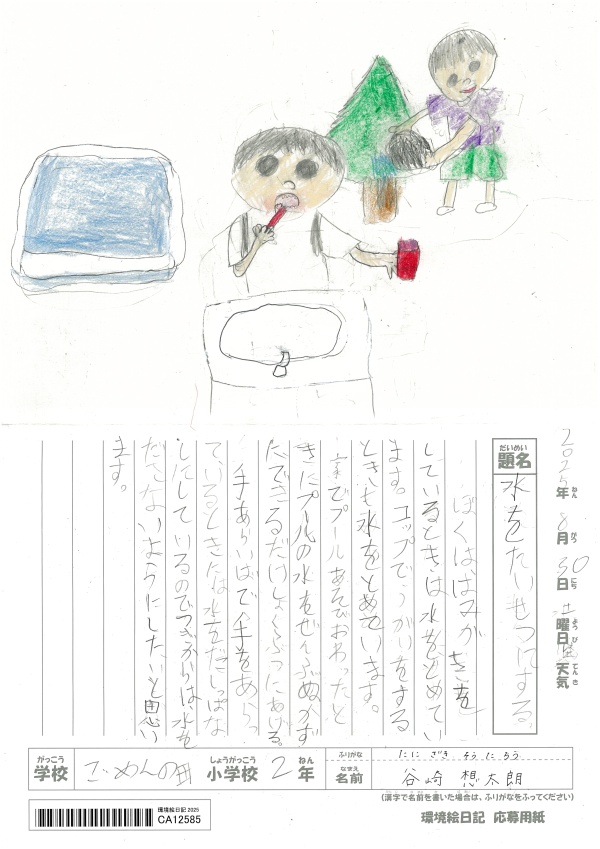 2025年 8月 30日 土曜日 天気
ねん がつ にち ようび てんき
だいめい
題名
水をたいせつにする。
ぼくははみがきを
しているときは水をとめてい
ます。コップでうがいをする
ときも水をとめています。
家でプールあそびおわったと
きにプールの水をぜんぶぬかず
にできるだけしょくぶつにあげる。
手あらいばで手をあらっ
ているときには水をだしっぱな
しにしているのでつぎからは、水を
ださないようにしたいと思い
ます。
がっこう
学校
ごめんの田
しょうがっこう
小学校
2
ねん
年
ふりがな
たにざき そうたろう
なまえ
名前
谷崎 想太朗
(漢字で名前を書いた場合は、ふりがなをふってください)
環境絵日記 2025
CA12585
環境絵日記 応募用紙